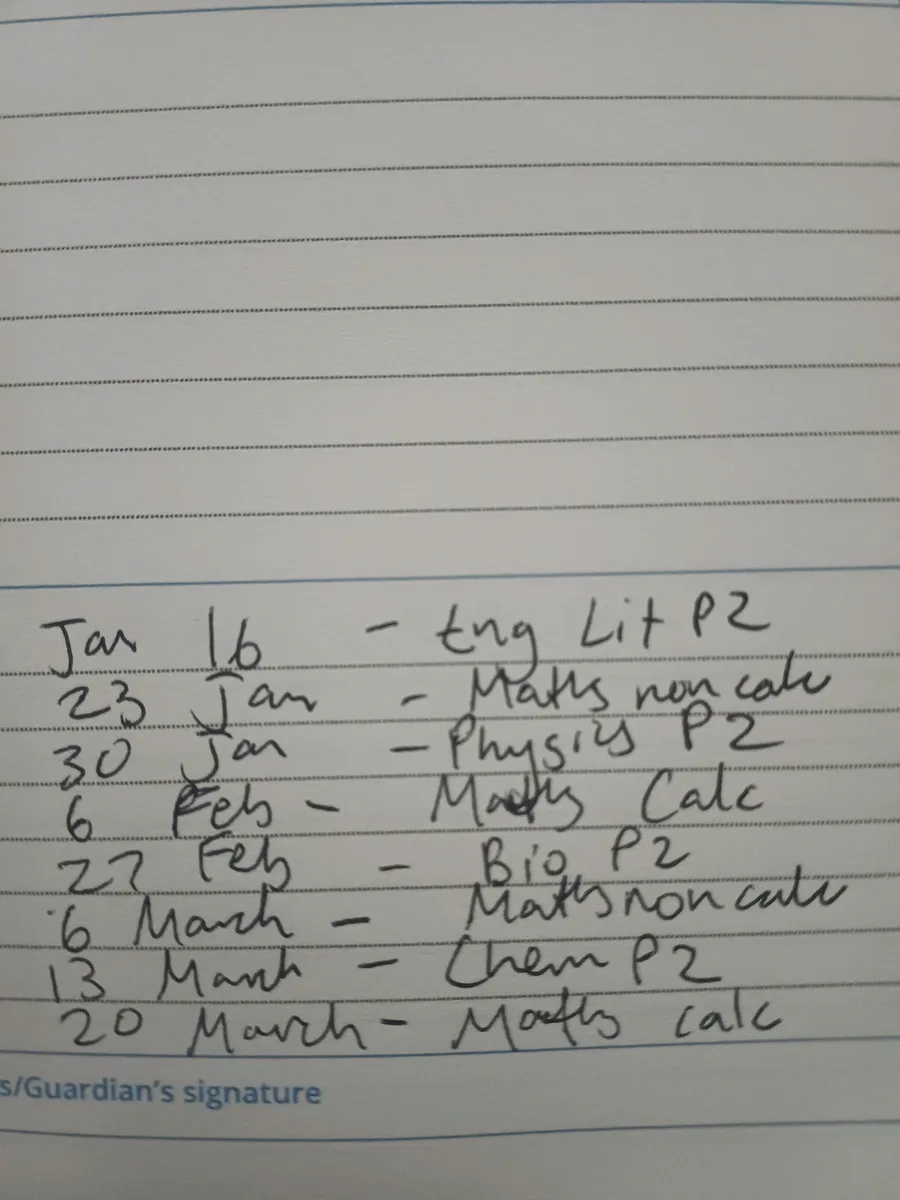 Jan 16 - Eng Lit P2
23 Jan - Maths non calc
30 Jan - Physics P2
6 Feb - Maths Calc
27 Feb - Bio P2
6 March - Maths non calc
13 March - Chem P2
20 March - Maths calc
s/Guardian's signature